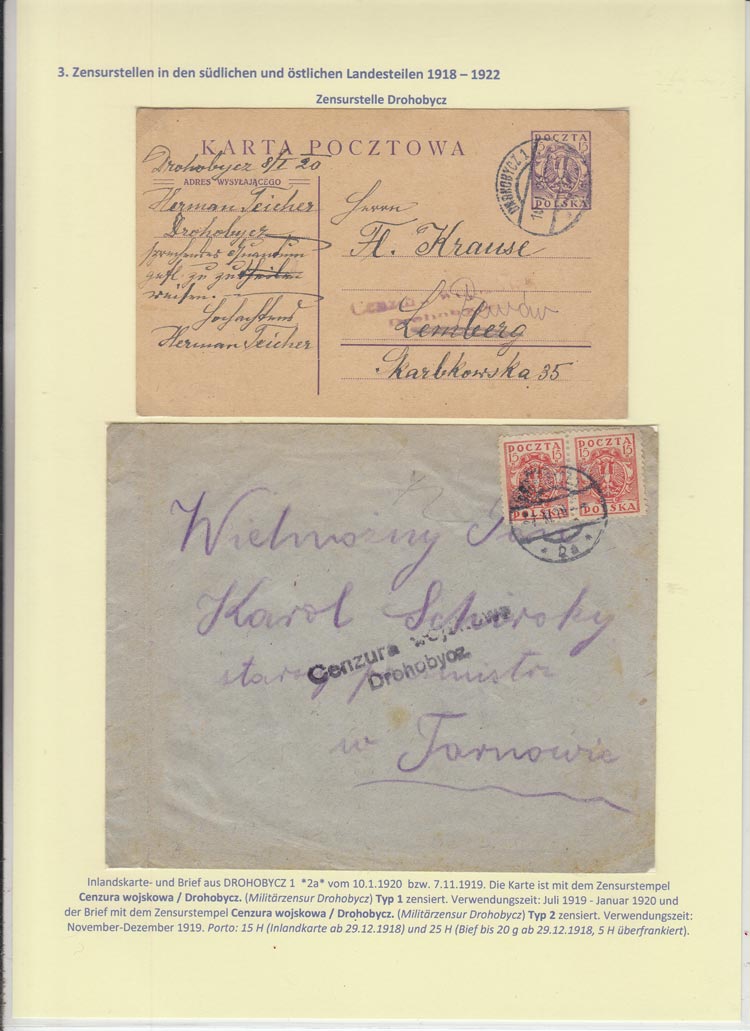 3. Zensurstellen in den südlichen und östlichen Landesteilen 1918 – 1922
Zensurstelle Drohobycz
KARTA POCZTOWA
Drohobycz 8/I 20
ADRES WYSYŁAJĄCEGO
Herman Teicher
Drohobycz
gefl. zu zutheilen
weisen.
Hochachtend
Herman Teicher
POCZTA
15 15
POLSKA
DROHOBYCZ 1
Herrn
Fl. Krause
Cenzura
Drohobycz
Lwów
Lemberg
Skarbkowska 35
POCZTA
15 15
POLSKA
POCZTA
15 15
POLSKA
Wielmożny Pan
Karol
Cenzura wojskowa
Drohobycz.
w Tarnowie
Inlandskarte- und Brief aus DROHOBYCZ 1 *2a* vom 10.1.1920 bzw. 7.11.1919. Die Karte ist mit dem Zensurstempel
Cenzura wojskowa / Drohobycz. (Militärzensur Drohobycz) Typ 1 zensiert. Verwendungszeit: Juli 1919 - Januar 1920 und
der Brief mit dem Zensurstempel Cenzura wojskowa / Drohobycz. (Militärzensur Drohobycz) Typ 2 zensiert. Verwendungszeit:
November-Dezember 1919. Porto: 15 H (Inlandkarte ab 29.12.1918) und 25 H (Bief bis 20 g ab 29.12.1918, 5 H überfrankiert).